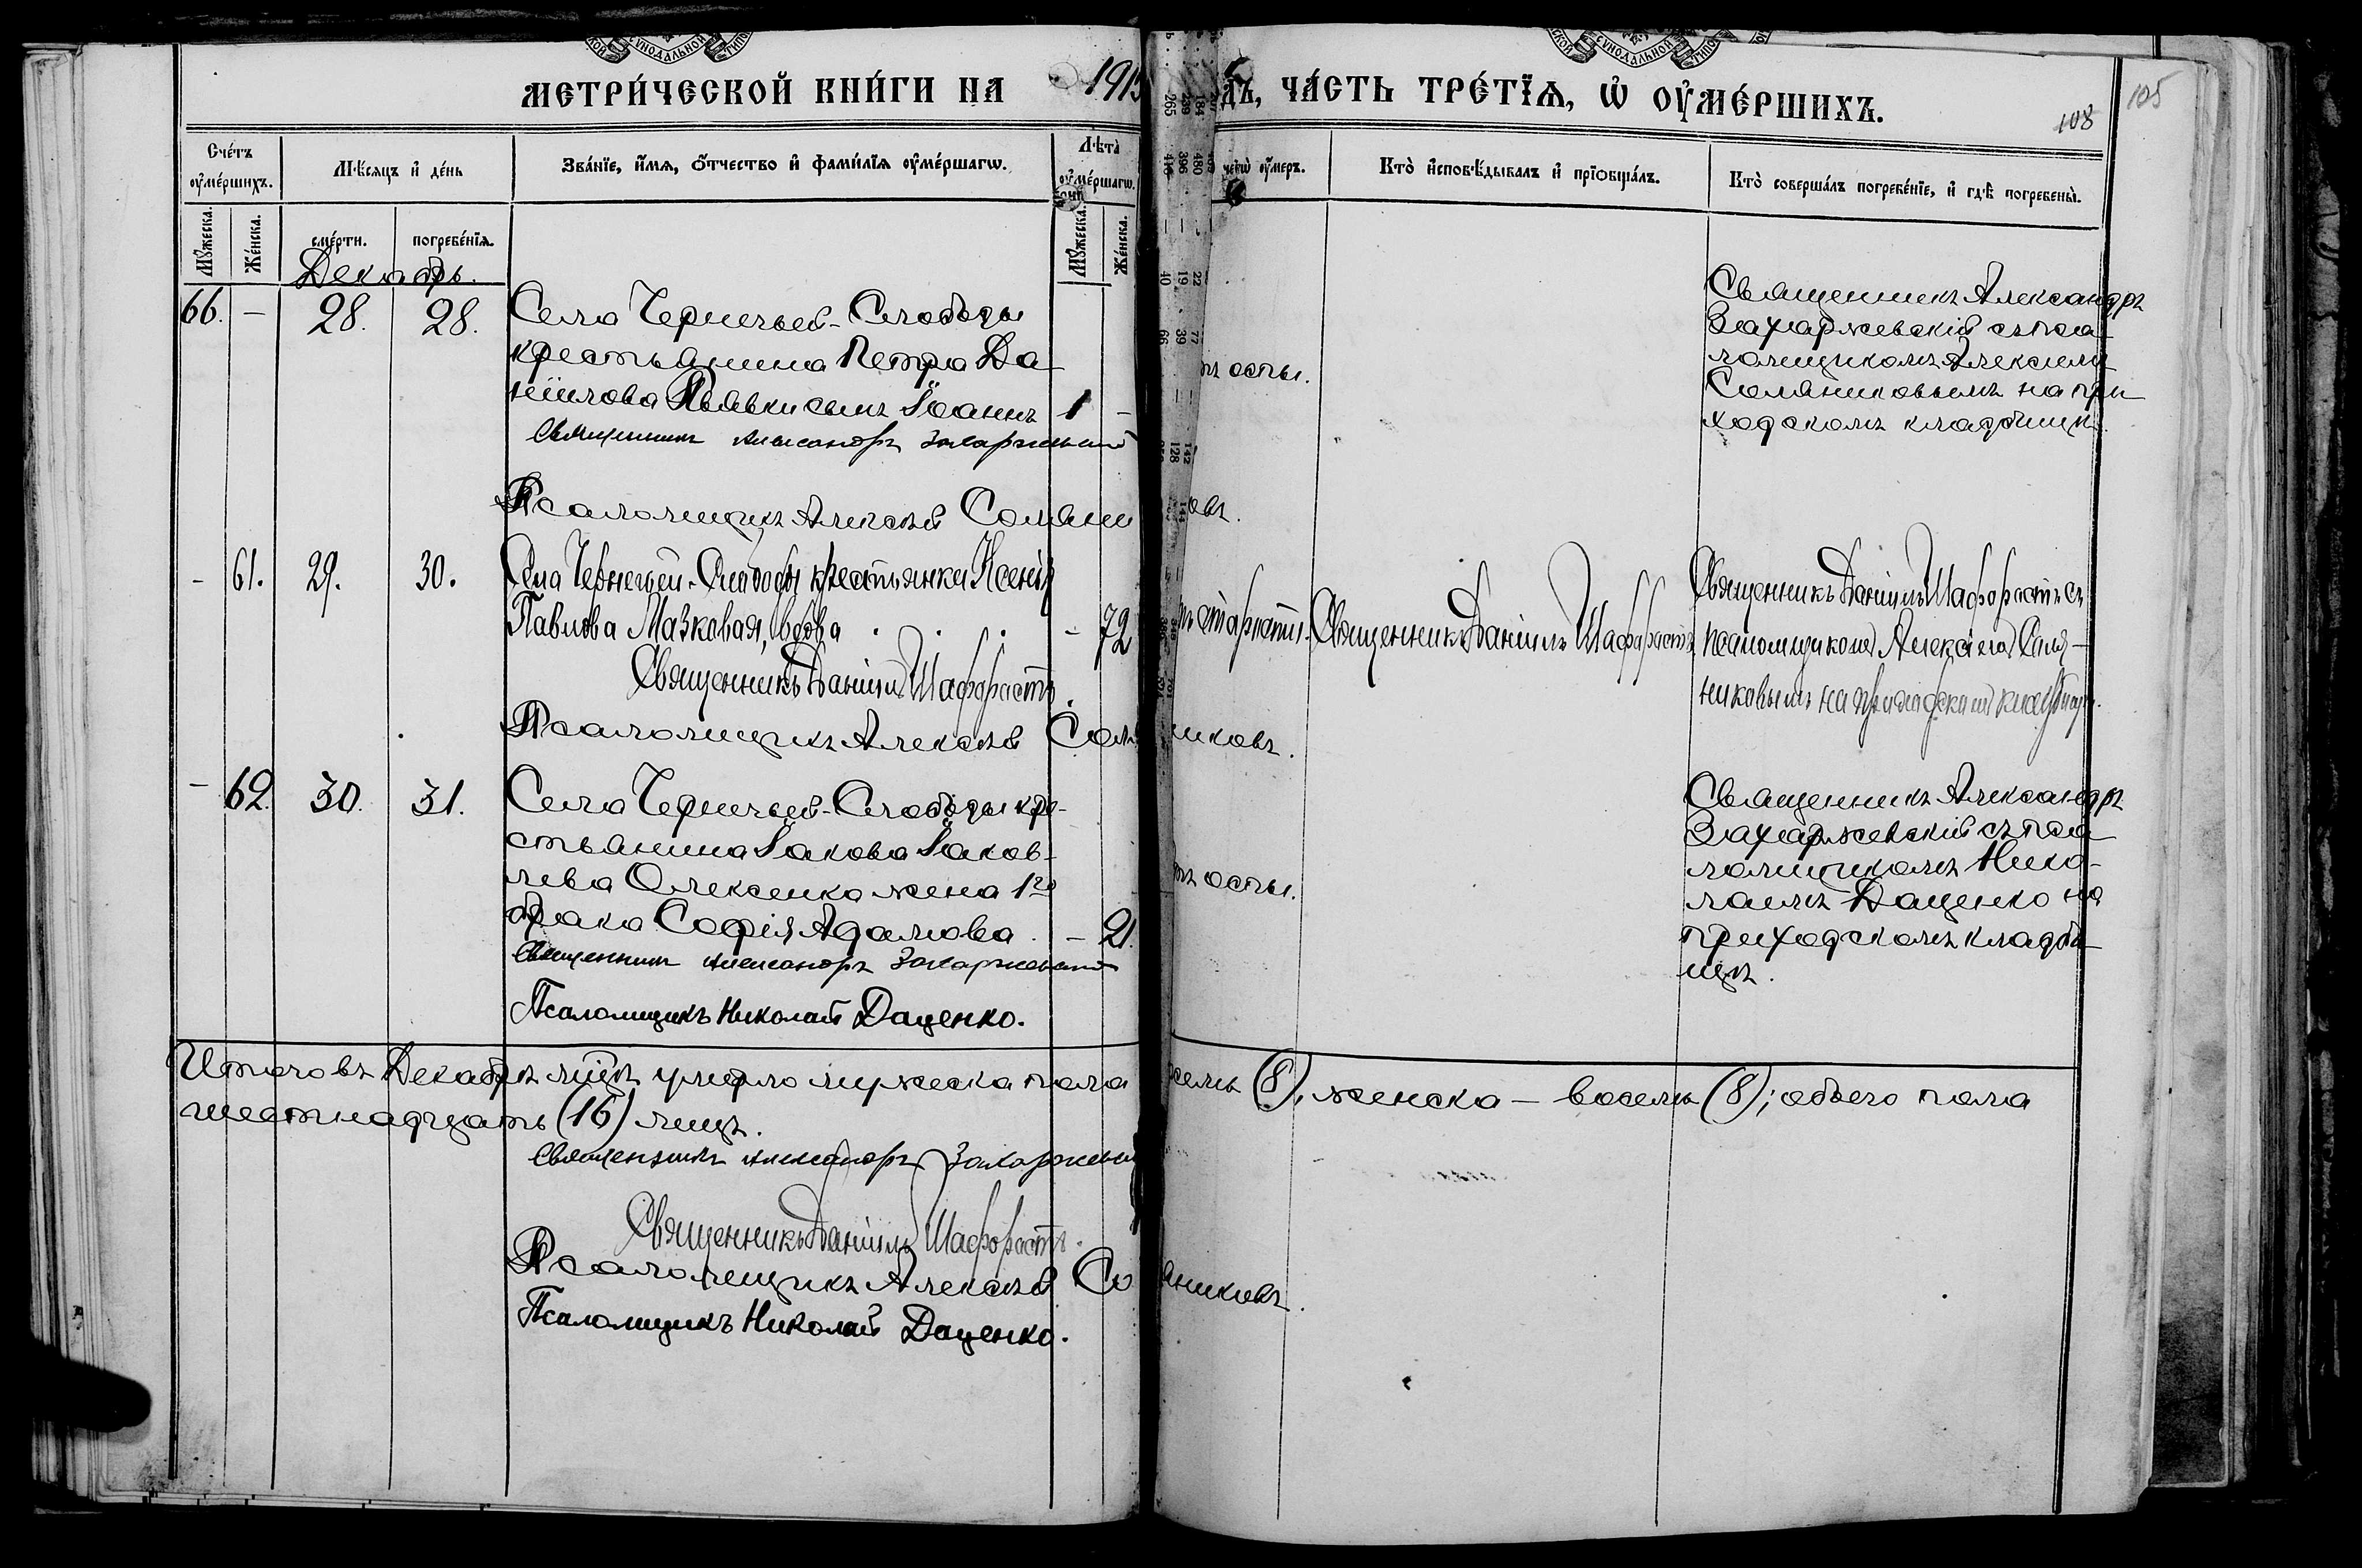 МЕТРИ́ЧЕСКОЙ КНИ́ГИ НА 1915 ДЪ, ЧА́СТЬ ТРЕ́ТІѦ, Ѡ҆ ОУ҆МЕ́РШИХЪ.
108
105
Сче́тъ оу҆ме́ршихъ.
Мѣ́сяцъ и҆ де́нь
Зва́нїе, и҆́мя, ѻ҆́тчество и҆ фами́лїя оу҆ме́ршагѡ.
Лѣ́та оу҆ме́ршагѡ.
чегѡ̀ оу҆́меръ.
Кто̀ и҆сповѣ́дывалъ и҆ прїѻбща́лъ.
Кто̀ соверша́лъ погребе́нїе, и҆ гдѣ̀ погребены̀.
Мꙋ́жеска.
Же́нска.
сме́рти.
погребе́нїя.
Мꙋ́жеска.
Же́нска.
Декабрь.
66. – 28. 28.
Села Чернечьей-Слободы
крестьянина Петра Да-
ніилова Пьявки сынъ Іоаннъ 1 –
Священникъ Александръ Захаржевскій
Псаломщикъ Алексѣй Соляни овъ.
ъ оспы.
Священникъ Александръ
Захаржевскій съ пса-
ломщикомъ Алексѣемъ
Соляниковымъ на при-
ходскомъ кладбищѣ.
– 61. 29. 30.
Села Чернечьей-Слободы крестьянка Ксенія
Павлова Мазковая, вдова . . . – 72
Священникъ Даніилъ Шафорастъ.
Псаломщикъ Алексѣй Сол никовъ.
ъ старости.
Священникъ Даніилъ Шафорастъ
Священникъ Даніилъ Шафорастъ съ
псаломщикомъ Алексѣемъ Соля-
никовымъ на приходскомъ кладбищѣ.
– 62. 30. 31.
Села Чернечьей-Слободы кре-
стьянина Іакова Іаков-
лева Олексенко жена 1го
брака Софія Адамова . – 21.
Священникъ Александръ Захаржевскій
Псаломщикъ Николай Даценко.
ъ оспы.
Священникъ Александръ
Захаржевскій съ пса-
ломщикомъ Нико-
лаемъ Даценко на
приходскомъ кладби-
щѣ.
Итого въ Декабрѣ мцѣ умерло мужеска пола семь (8), женска – восемь (8); обоего пола
шестнадцать (16) лицъ.
Священникъ Александръ Захаржевскі
Священникъ Даніилъ Шафорастъ.
Псаломщикъ Алексѣй Со яниковъ.
Псаломщикъ Николай Даценко.